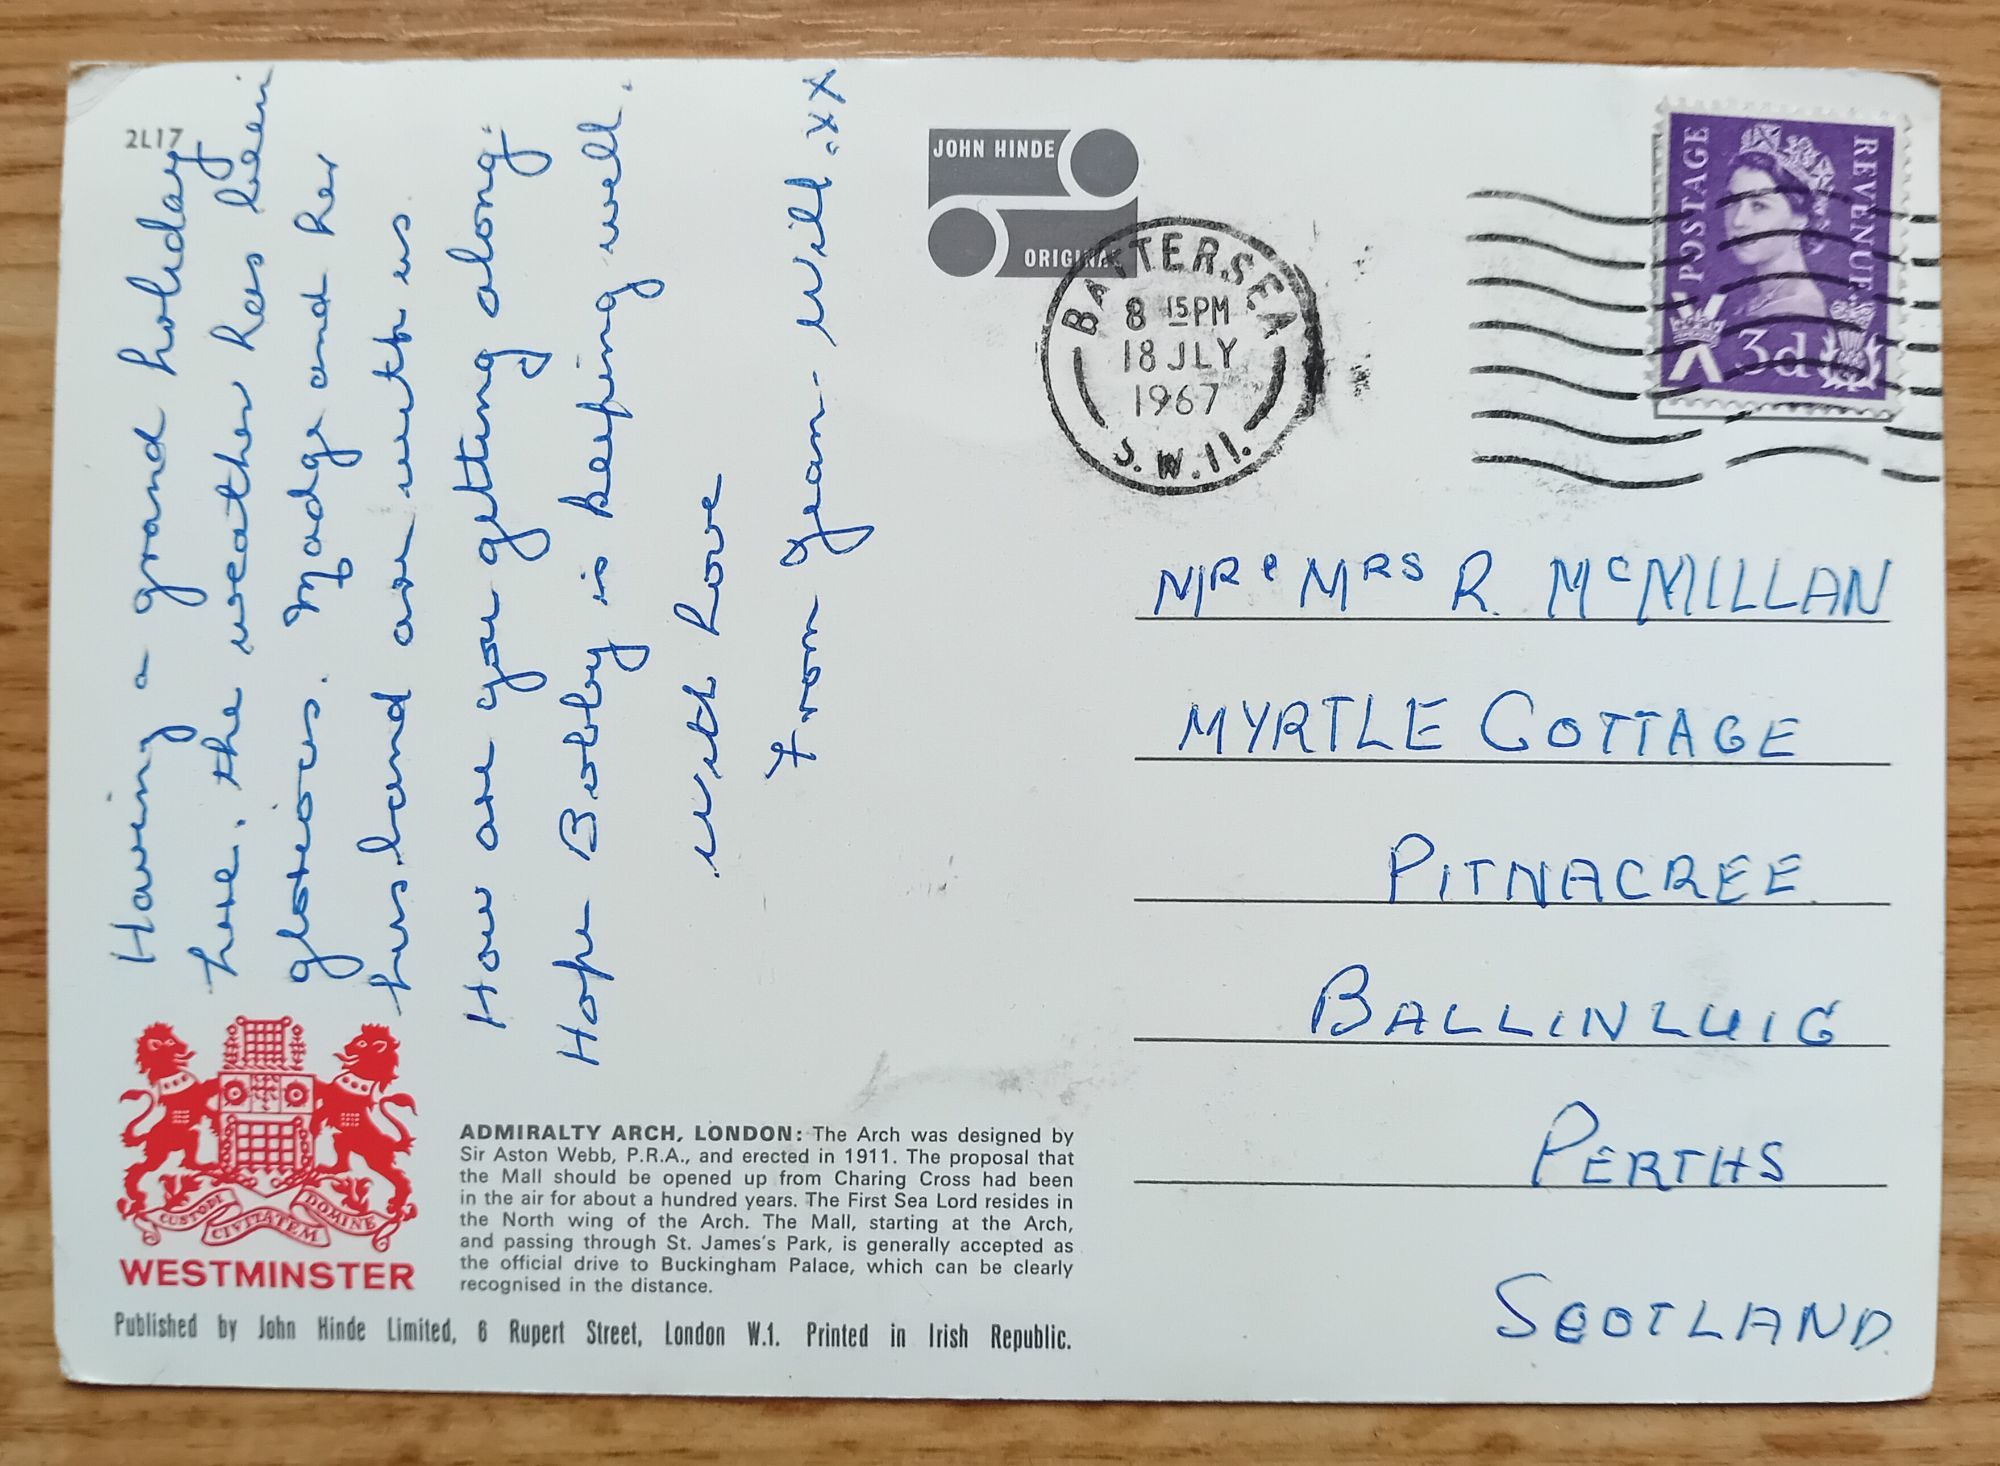 2L17
Having a grand holiday
here. the weather has been
glorious. Madge and her
husband are with us
How are you getting along.
Hope Bobby is keeping well.
with love
from Jean - Will. xxx
JOHN HINDE
ORIGINAL
BATTERSEA
8 15 PM
18 JLY
1967
S.W.11.
POSTAGE
REVENUE
3d
MR & MRS R. MCMILLAN
MYRTLE COTTAGE
PITNACREE
BALLINLUIG
PERTHS
SCOTLAND
CUSTODI CIVITATEM DOMINE
WESTMINSTER
ADMIRALTY ARCH, LONDON: The Arch was designed by
Sir Aston Webb, P.R.A., and erected in 1911. The proposal that
the Mall should be opened up from Charing Cross had been
in the air for about a hundred years. The First Sea Lord resides in
the North wing of the Arch. The Mall, starting at the Arch,
and passing through St. James's Park, is generally accepted as
the official drive to Buckingham Palace, which can be clearly
recognised in the distance.
Published by John Hinde Limited, 6 Rupert Street, London W.1. Printed in Irish Republic.